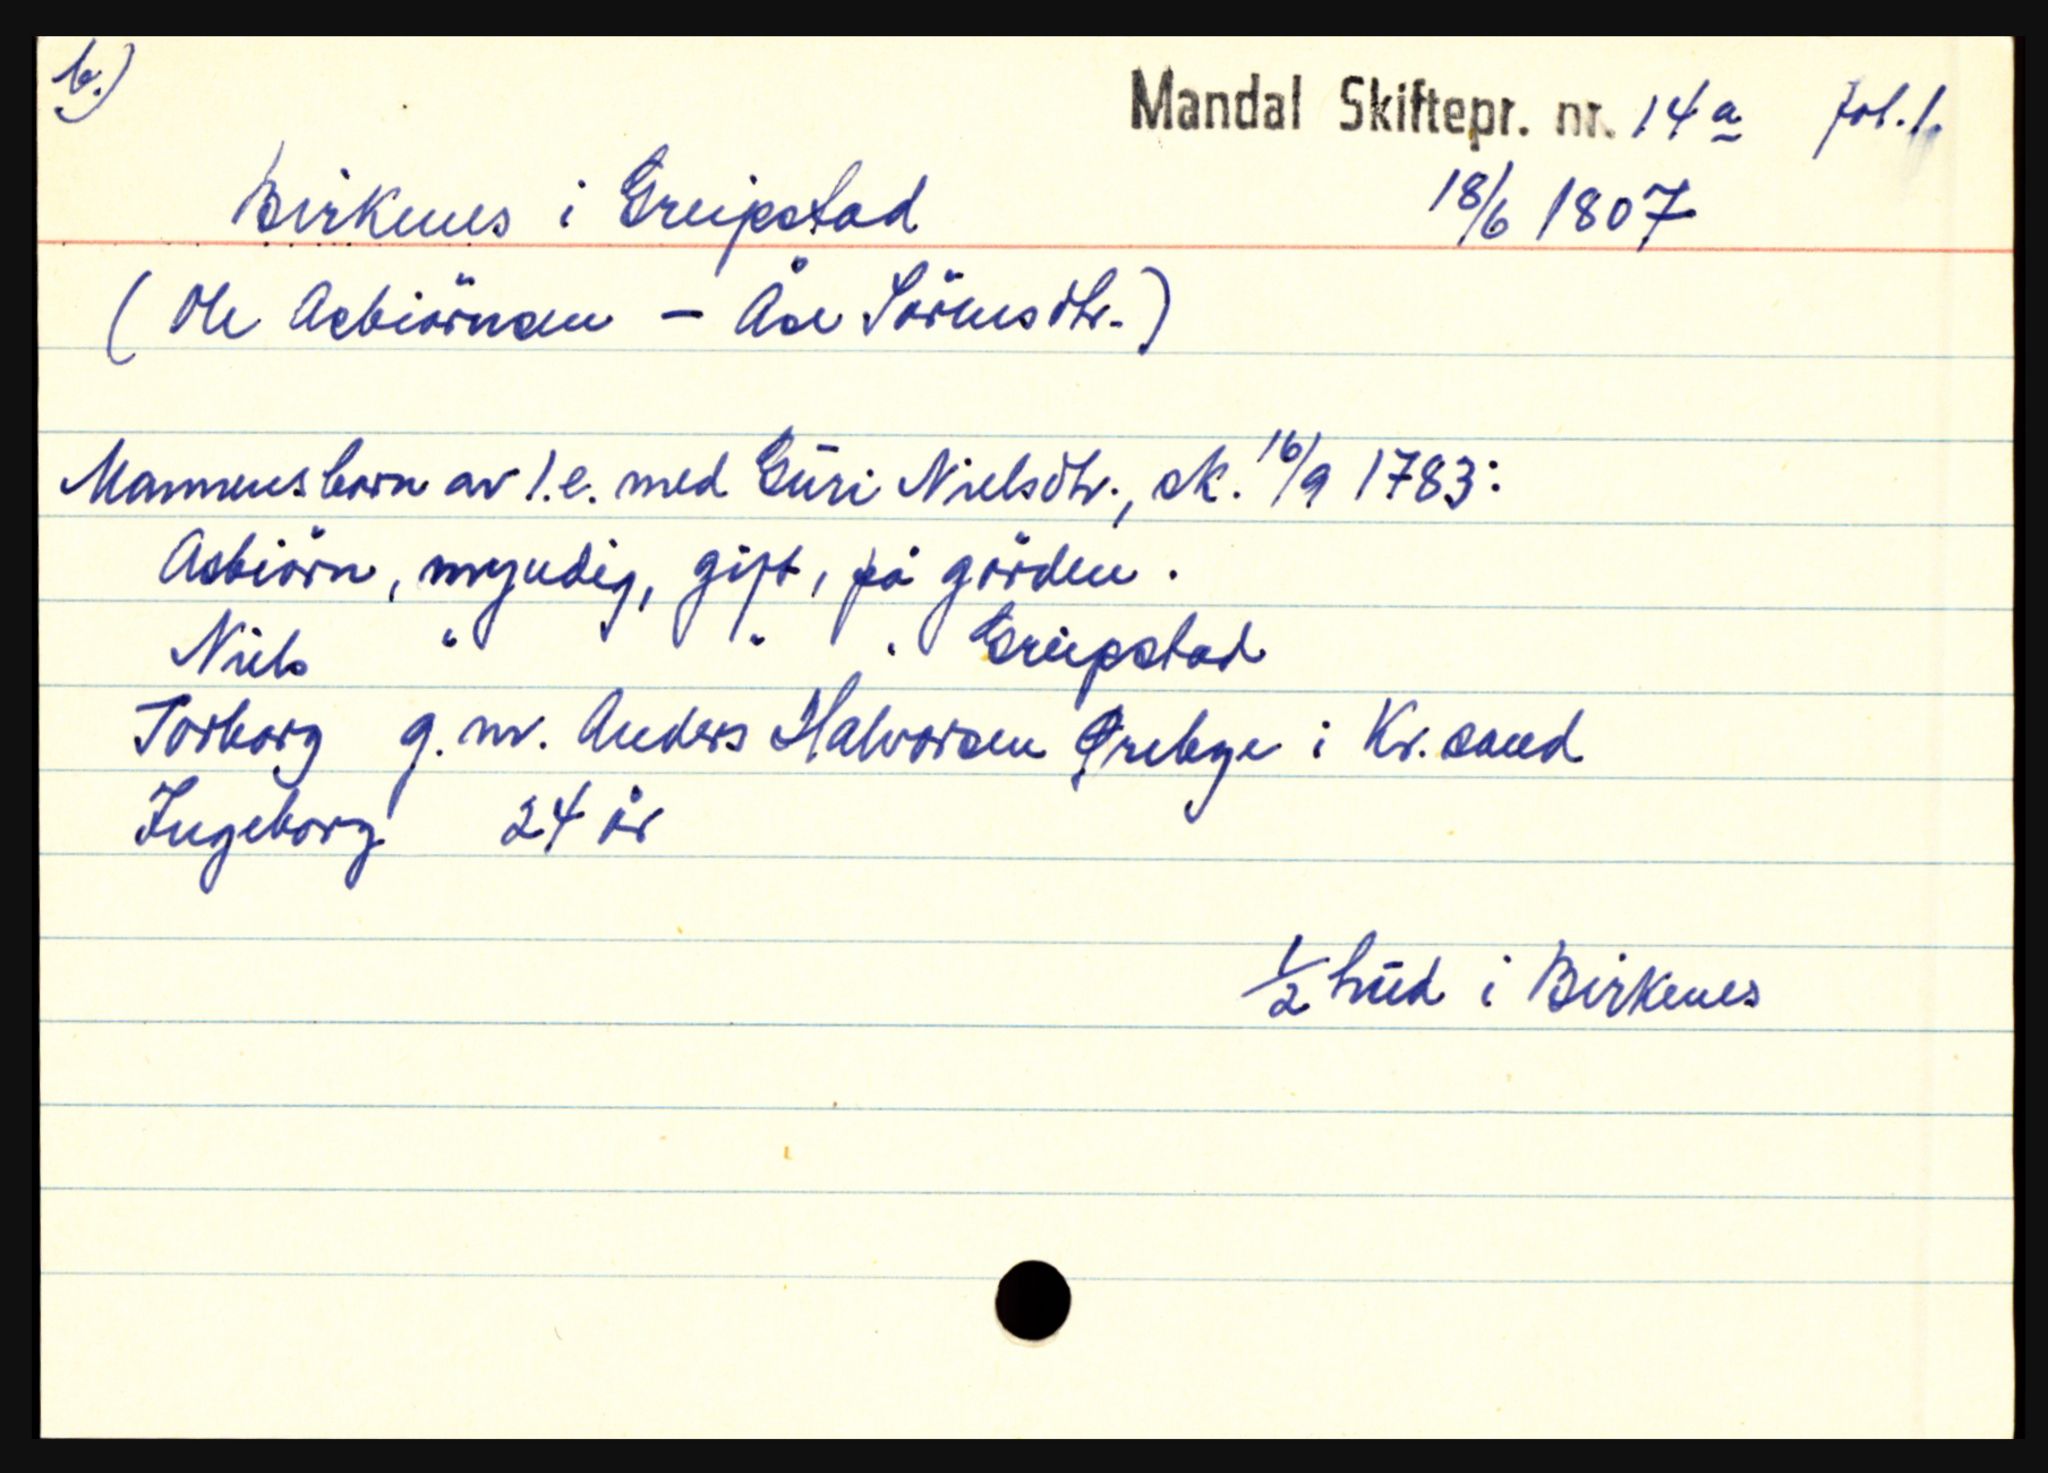 b.)
Mandal Skiftepr. nr. 14 a fol. 1.
Birkenes i Greipstad 18/6 1807
(Ole Asbiörnsen - Åse Sörensdtr.)
Mannens born av 1.e. med Gūri Nielsdtr., sk. 16/9 1783:
Asbiörn, myndig, gift, på gården.
Niels " " " Greipstad
Torborg g. m. Anders Halvorsen Ørebye i Kr. sand
Ingeborg 24 år
1/2 hūd i Birkenes